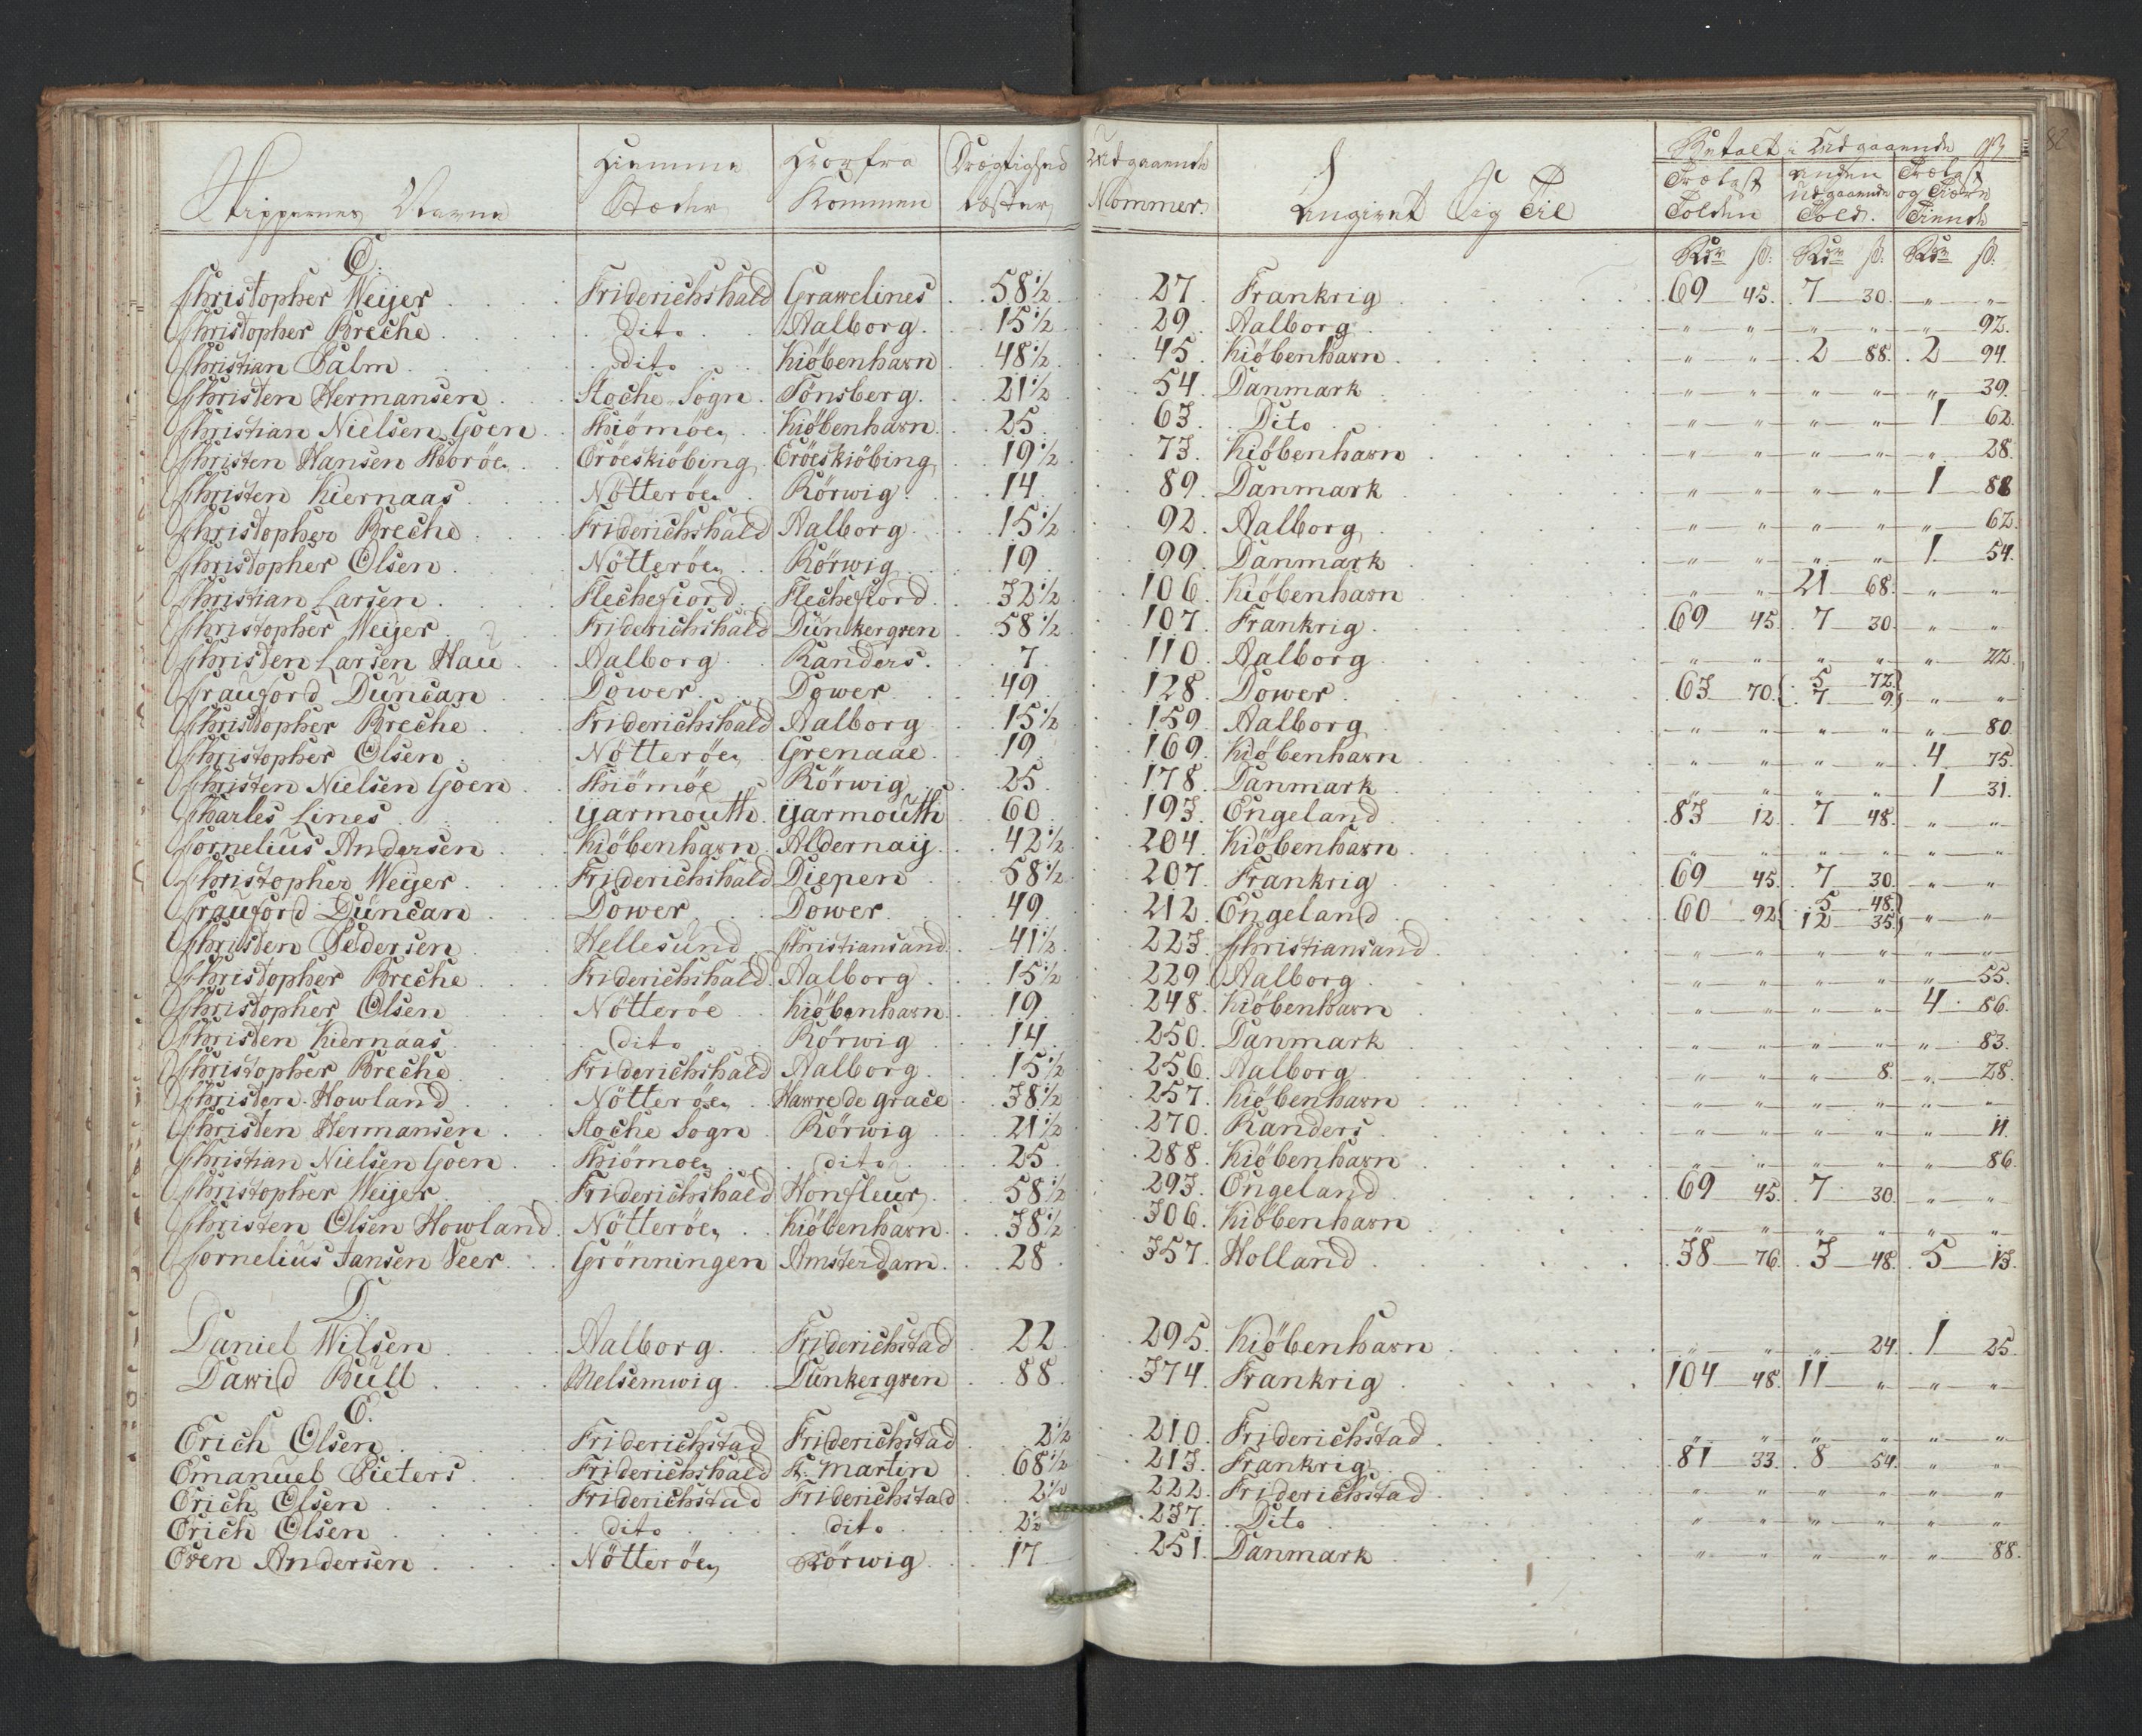 82
Skippernes Navne Hiemme Stæder Hvorfra Kommen Drægtighed Læster Udgaaende Nommer. Angivet Sig Til Betalt i Udgaaende
Trælast Tolden anden Udgaaende Told. Trælast og Tiære Tiende
Rdr ß. Rdr ß. Rdr ß.
C.
Christopher Weijer Friderichshald Grawelines 58 1/2 27 Frankrig 69 45. 7 30. " "
Christopher Breche dito Aalborg. 15 1/2 29. Aalborg " " " " " 92.
Christian Palm dito Kiöbenhavn 48 1/2 45. Kiöbenhavn " " 2 88. 2 94.
Christen Hermansen Stoche Sogn Tönsberg. 21 1/2 54. Danmark " " " " " 39.
Christian Nielsen Goen Thiömöe Kiöbenhavn. 25 63. Dito " " " " 1 62.
Christen Hansen Eröeskiöbing Eröeskiöbing 19 1/2 73. Kiöbenhavn " " " " " 28.
Christen Kiernaas Nötteröe Rörwig. 14 89. Danmark " " " " 1 88
Christopher Breche Friderichshald Aalborg 15 1/2 92. Aalborg " " " " " 62.
Christopher Olsen Nötteröe Rörwig 19 99. Danmark " " " " 1 54.
Christian Larsen Flechefiord Flechefiord 32 1/2 106. Kiöbenhavn " " 21 68. " "
Christopher Weijer Friderichshald Dünkergven 58 1/2 107. Frankrig 69 45. 7 30. " "
Christen Larsen Hau Aalborg Randers. 7 110. Aalborg " " " " " 22.
Crauford Duncan Dower Dower 49 128. Dower 63 70. 5 72. 7 9. " "
Christopher Breche Friderichshald Aalborg 15 1/2 159. Aalborg " " " " " 80.
Christopher Olsen Nötteröe Grenaae 19 169. Kiöbenhavn " " " " 4 75.
Christen Nielsen Goen Thiömöe Rörwig 25 178. Danmark " " " " 1 31.
Charles Lines ijarmouth ijarmouth 60 193. Engeland 83 12. 7 48. " "
Cornelius Andersen Kiöbenhavn Aldernaij 42 1/2 204. Kiöbenhavn " " " " " "
Christopher Weijer Friderichshald Diepen 58 1/2 207. Frankrig 69 45. 7 30. " "
Crauford Duncan Dower Dower 49 212. Engeland 60 92. 5 48. 12 35. " "
Christen Pedersen Hellesund Christiansand 41 1/2 223. Christiansand " " " " " "
Christopher Breche Friderichshald Aalborg 15 1/2 229. Aalborg " " " " " 55.
Christopher Olsen Nötteröe Kiöbenhavn 19 248. Kiöbenhavn " " " " 4 86.
Christen Kiernaas dito Rörwig 14 250. Danmark " " " " " 83.
Christopher Breche Friderichshald Aalborg 15 1/2 256. Aalborg " " " 8. " 28.
Christen Howland Nötteröe Hawre de grace 38 1/2 257. Kiöbenhavn " " " " " "
Christen Hermansen Stoche Sogn Rörwig 21 1/2 270. Randers " " " " " 11.
Christian Nielsen Goen Thiömöe dito 25 288. Kiöbenhavn " " " " " 86.
Christopher Weijer Friderichshald Honfleur 58 1/2 293. Engeland 69 45. 7 30. " "
Christen Olsen Howland Nötteröe Kiöbenhavn 38 1/2 306. Kiöbenhavn " " " " " "
Cornelius Jansen Veer Grönningen Amsterdam 28 357. Holland 38 76. 3 48. 5 13.
D.
Daniel Wilsen Aalborg Friderichstad 22 295. Kiöbenhavn " " " 24. 1 25.
Dawid Bull Melsemwig Dünkergven 88 374. Frankrig 104 48. 11 " " "
E.
Erich Olsen Friderichstad Friderichstad 2 1/2 210. Friderichstad " " " " " "
Emanuel Pieters Friderichshald St. Martin 68 1/2 213. Frankrig 81 33. 8 54. " "
Erich Olsen Friderichstad Friderichstad 2 1/2 222. Friderichstad " " " " " "
Erich Olsen dito dito 2 1/2 237. Dito " " " " " "
Even Andersen Nötteröe Rörwig 17 251. Danmark " " " " " 88.